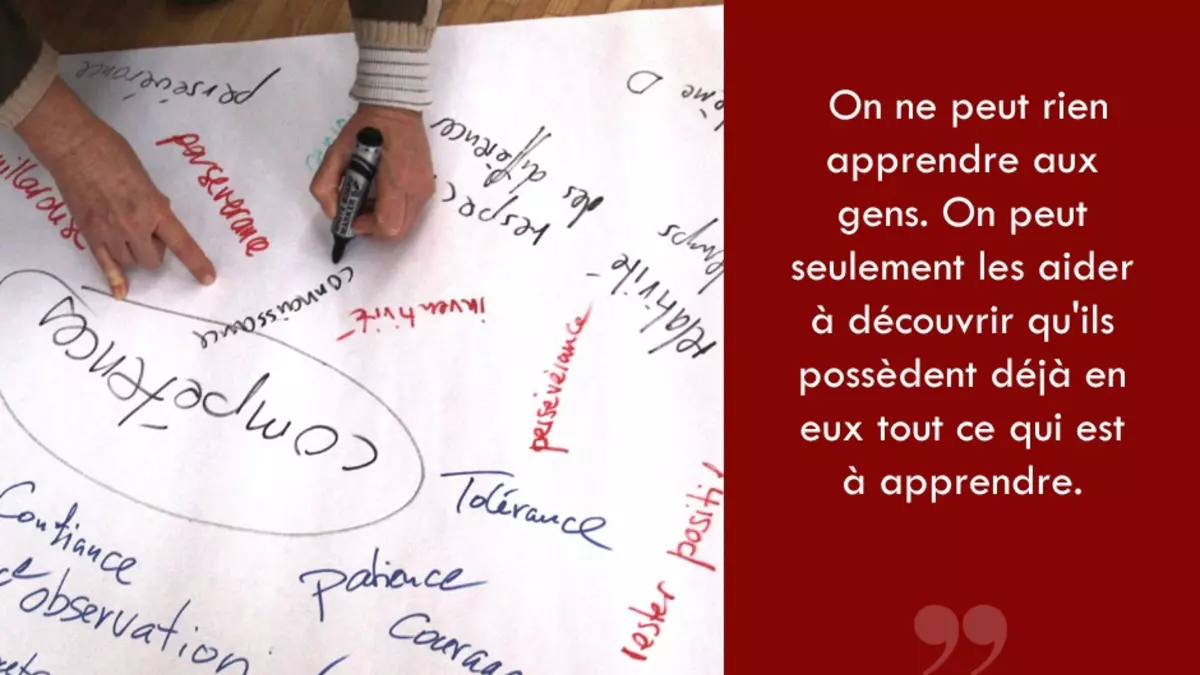 persévérance
perseverance
connaissance
inventivité
respect
des différences
relativité
temps
persévérance
compétences
Tolérance
Confiance
patience
observation
Courage
rester positif
On ne peut rien
apprendre aux
gens. On peut
seulement les aider
à découvrir qu'ils
possèdent déjà en
eux tout ce qui est
à apprendre.
”